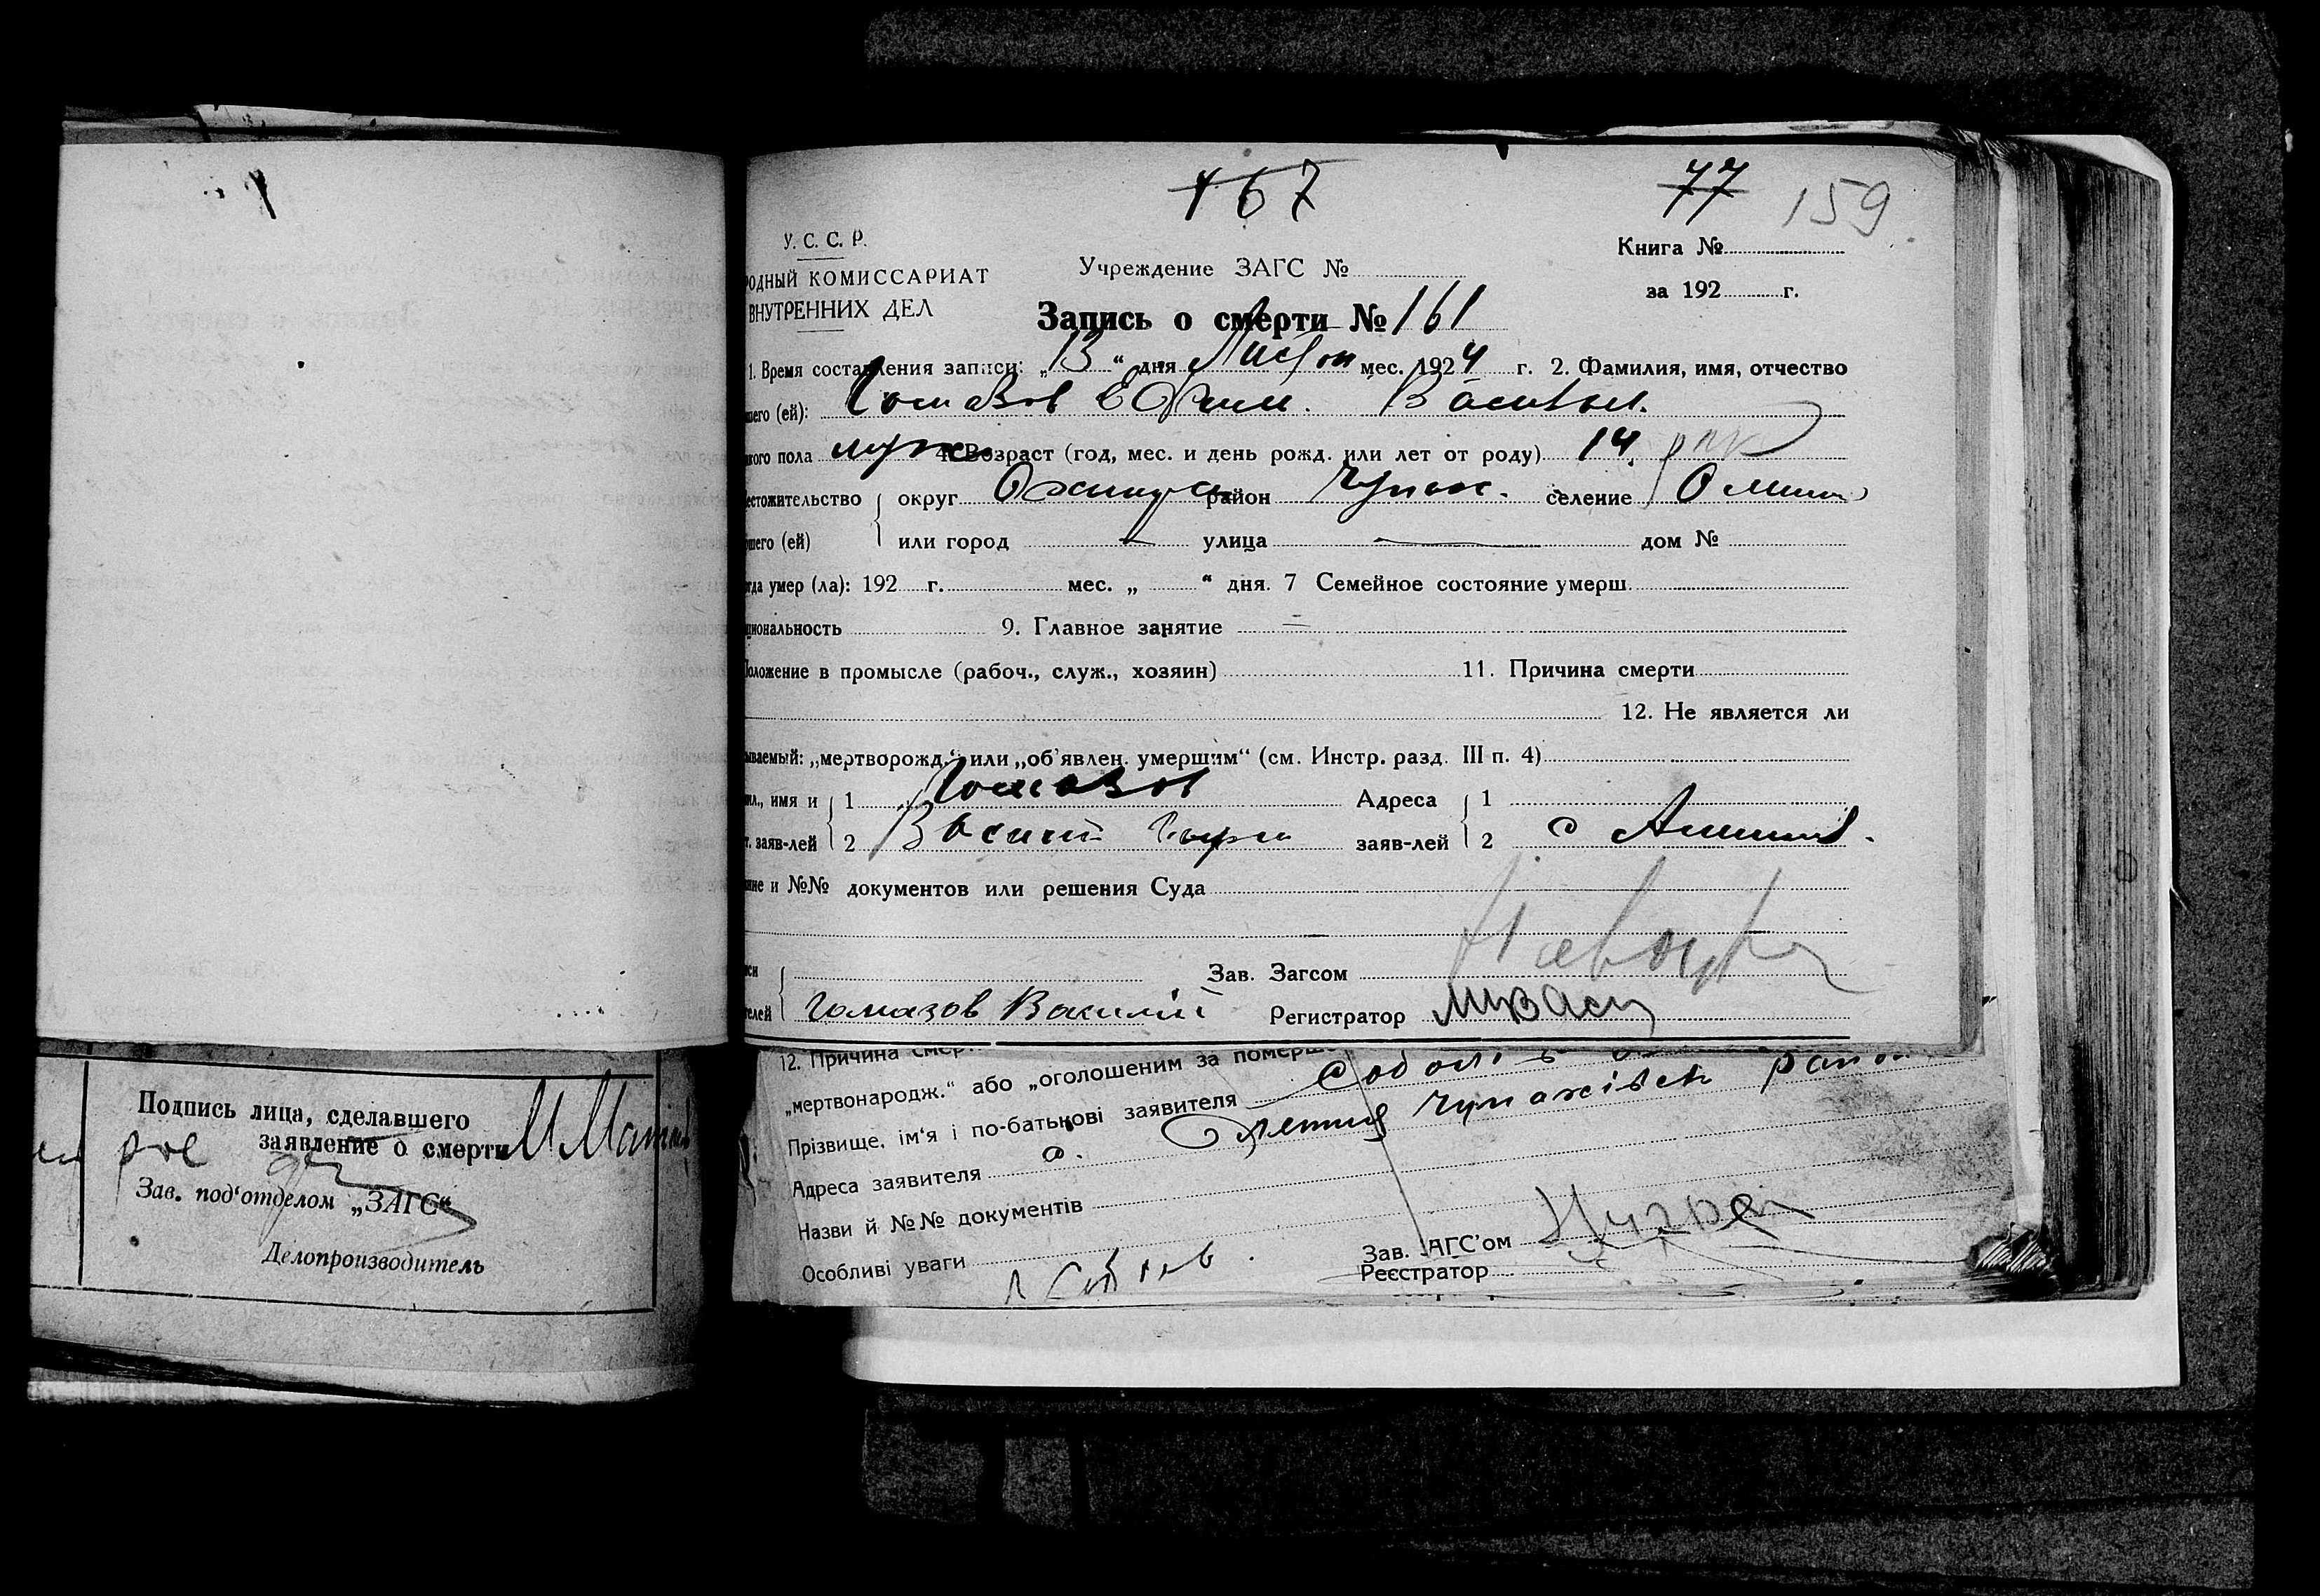 167
77 159
У. С. С. Р.
РОДНЫЙ КОМИССАРИАТ
ВНУТРЕННИХ ДЕЛ
Учреждение ЗАГС №
Книга №
за 192 г.
Запись о смерти № 161
1. Время составления записи: „13“ дня Листоп мес. 1924 г. 2. Фамилия, имя, отчество
шего (ей): Гомазов Ефим. Васильев.
кого пола муж 4. Возраст (год, мес. и день рожд. или лет от роду) 14. рок
естожительство округ район Чупах. селение
шего (ей) или город — улица — дом №
огда умер (ла): 192 г. мес. „ “ дня. 7 Семейное состояние умерш.
циональность 9. Главное занятие
Положение в промысле (рабоч., служ., хозяин) 11. Причина смерти
12. Не является ли
ываемый: „мертворожд.“ или „об'явлен. умершим“ (см. Инстр. разд. III п. 4)
ил., имя и 1 Гомазов Адреса 1
т. заяв-лей 2 заяв-лей 2 с
ние и №№ документов или решения Суда
си Зав. Загсом
телей Гомазов Василий Регистратор
12. Причина смер
„мертвонародж.“ або „оголошеним за померш
Прізвище, ім'я і по-батькові заявителя
Адреса заявителя с. Чупахівськ район
Назви й №№ документів
Особливі уваги
Зав. ЗАГС'ом
Реєстратор
Подпись лица, сделавшего
заявление о смерти
Зав. под'отделом „ЗАГС“
Делопроизводитель